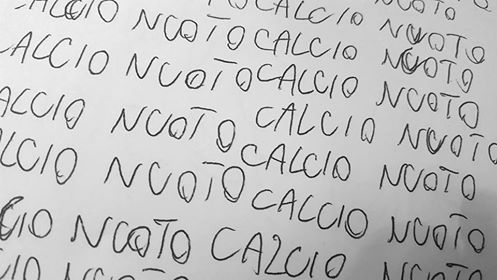 TO CALCIO NUOTO
NUOTO
ALCIO NUOTO CALCIO NUOTO
ALCIO NUOTO CALCIO NUOTO
ALCIO NUOTO CALCIO NUOTO
CALCIO NUOTO
LCIO NUOTO CALCIO NUOTO
CIO NUOTO CA2CIO NUOTO
IO NUOTO